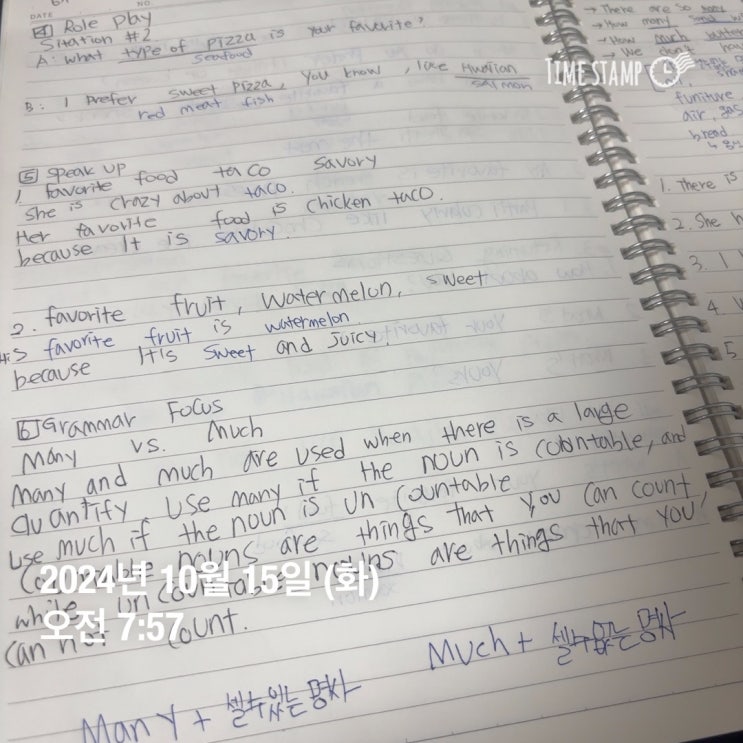 DATE
NO.
4 Role play
Sitation #2
A: what type of pizza is your favorite?
seafood
B: I prefer sweet pizza, you know, like Hwaiian
red meat fish salmon
5 speak up
1 favorite food taco savory
She is crazy about taco.
Her favorite food is chicken taco.
because It is savory.
2. favorite fruit, watermelon, sweet
His favorite fruit is watermelon
because It is sweet and juicy
6 Grammar Focus
Many vs. Much
Many and much are used when there is a large
quantify use many if the noun is countable, and
use much if the noun is un countable
nouns are things that you can count,
while uncountable nouns are things that you
can not count.
Many + 셀수있는 명사
Much + 셀수없는 명사
→ There are so many
→ How many
→ How much
→ We don't
funiture
air, gas
bread
1. There is
2. She
3. I
4.
5.
TIMESTAMP
2024년 10월 15일 (화)
오전 7:57